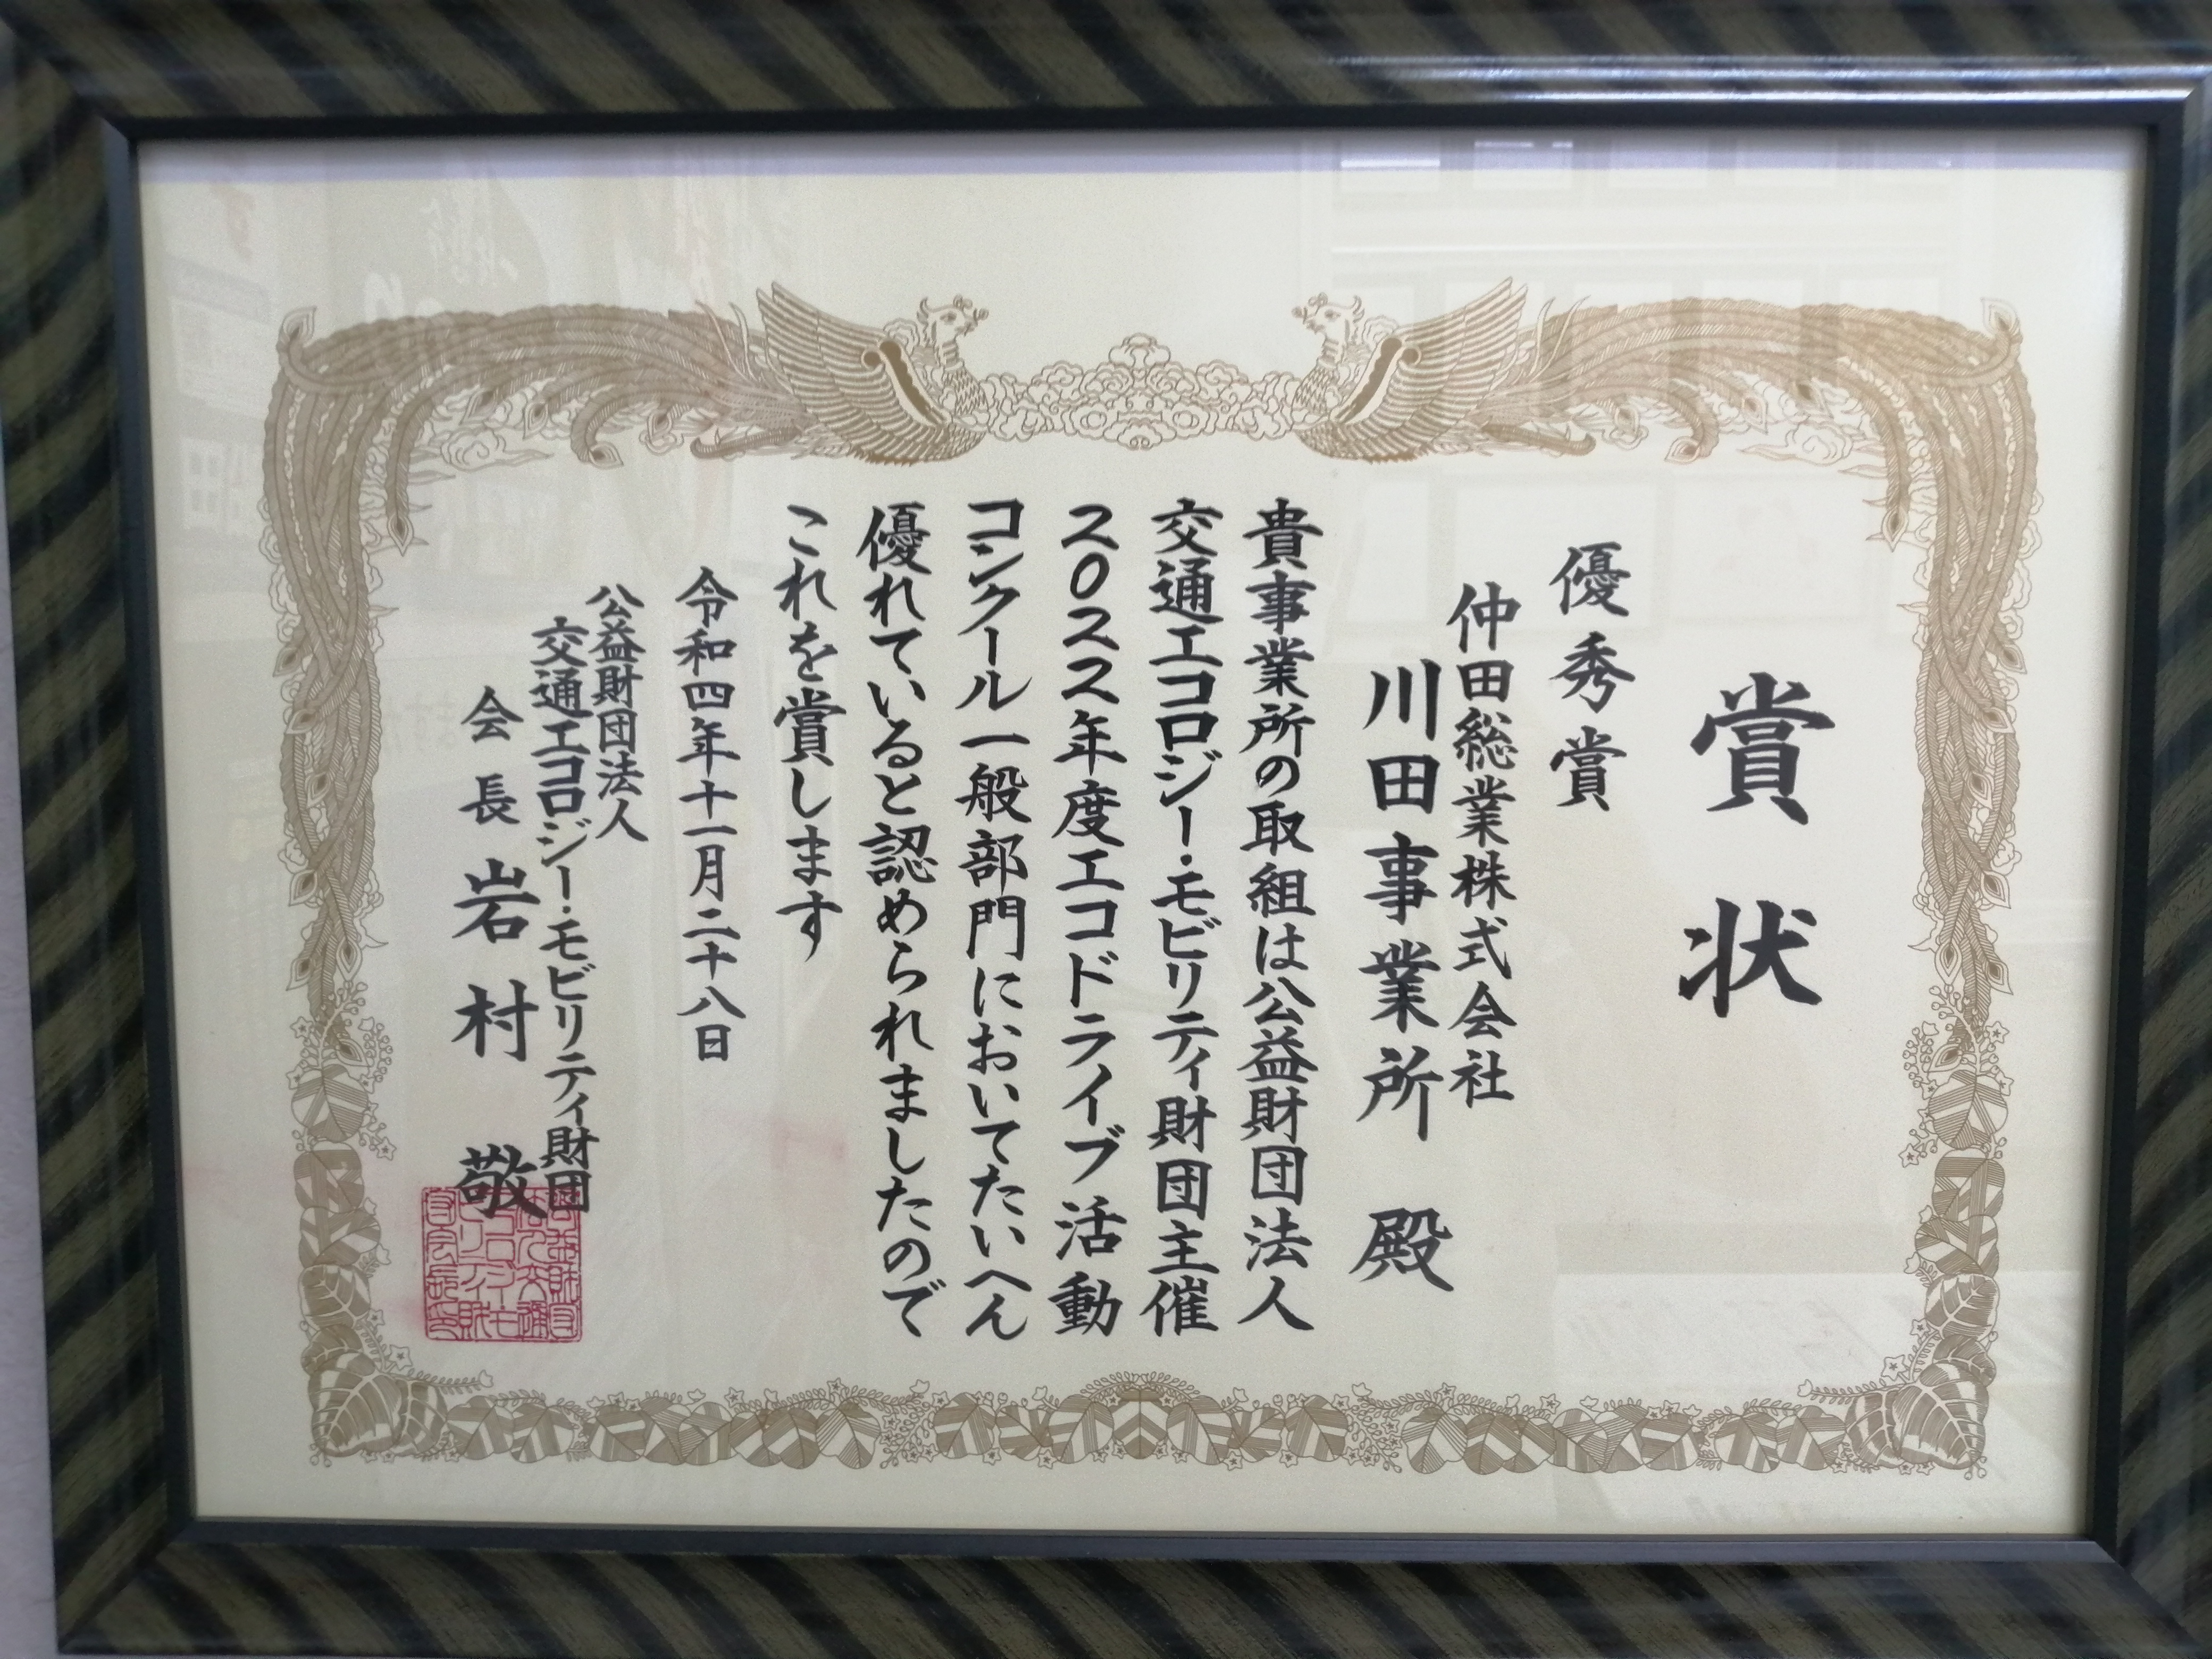 賞状
優秀賞
仲田総業株式会社
川田事業所 殿
貴事業所の取組は公益財団法人
交通エコロジー・モビリティ財団主催
2022年度エコドライブ活動
コンクール一般部門においてたいへん
優れていると認められましたので
これを賞します
令和四年十一月二十八日
公益財団法人
交通エコロジー・モビリティ財団
会長 岩村 敬